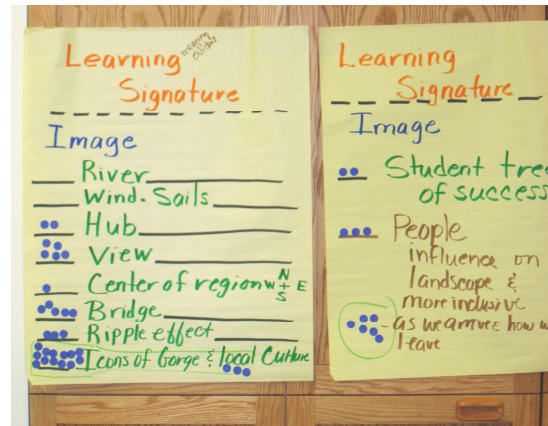 Learning
Signature
Image
River
Wind. Sails
Hub
View
Center of region W N S E
Bridge
Ripple effect
Icons of Gorge & local Culture
Learning
Signature
Image
Student tree
of success
People
influence on
landscape &
more inclusive
as we arrive how
leave